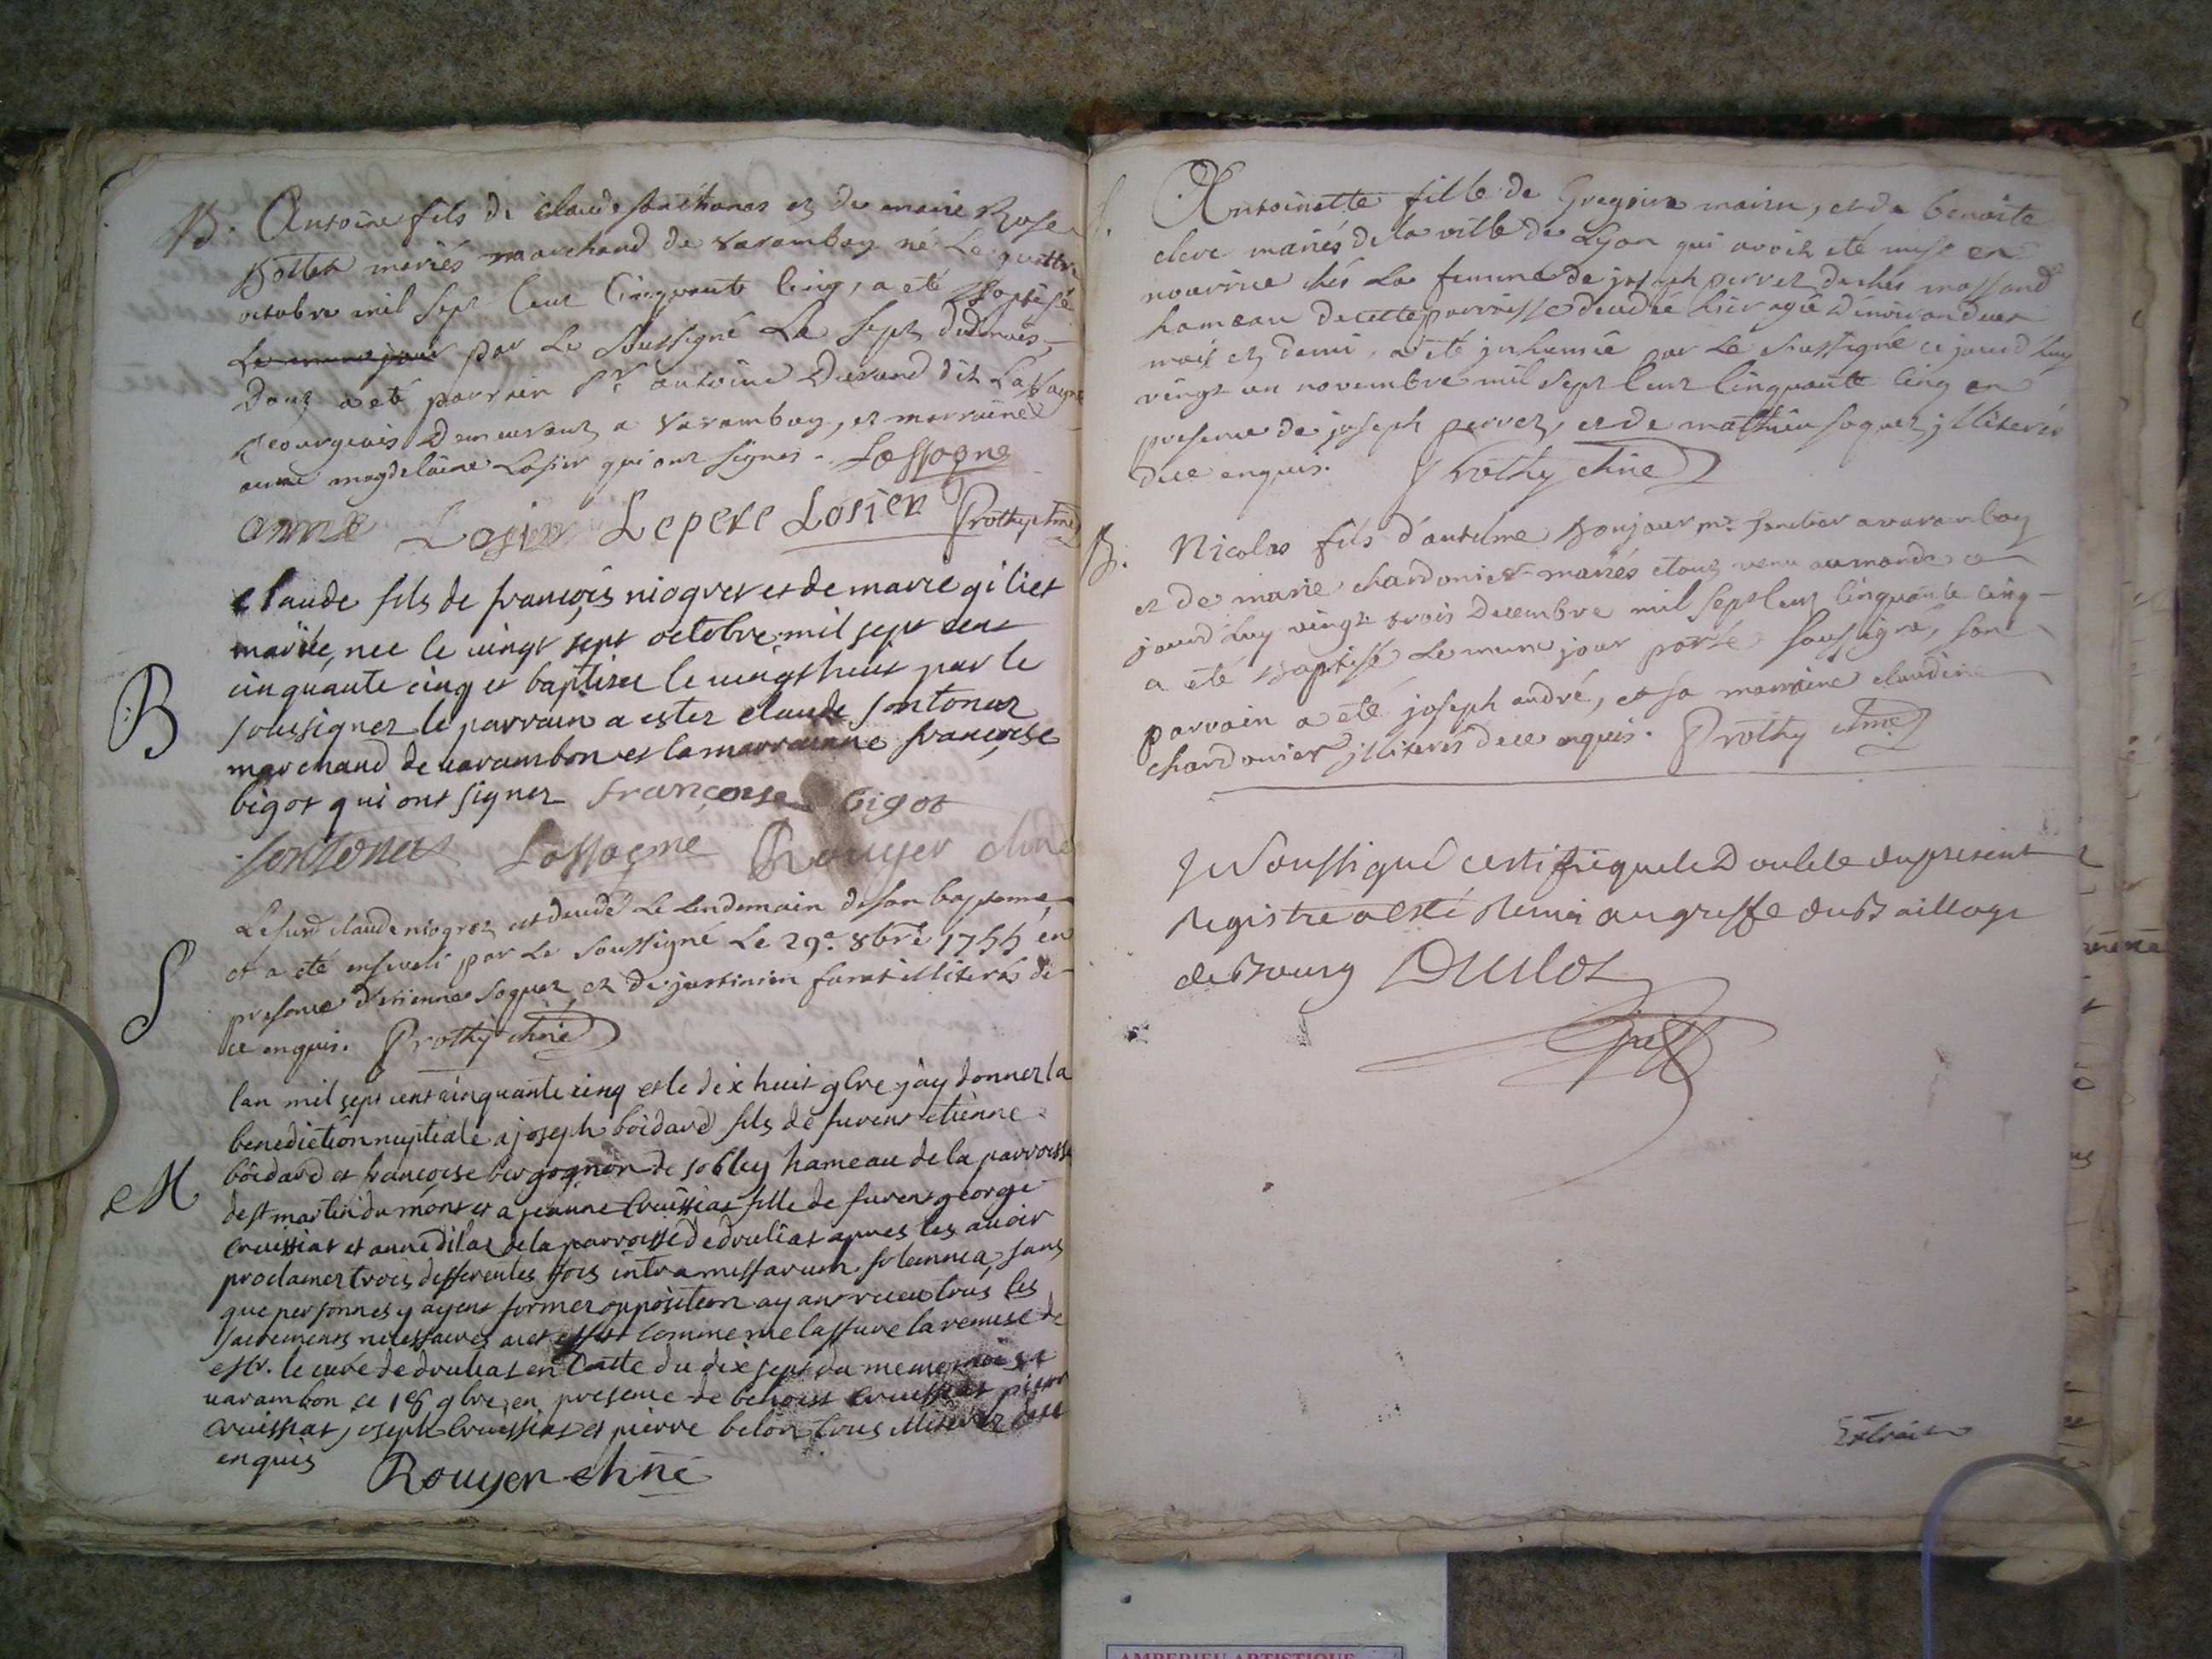 B. Antoine fils de Claude Sonthonas et de marie Rose
Bottex mariés marchand de varambon né Le quattre
octobre mil sept Cent Cinquante Cinq, a été Baptisé
Le meme jour par Le Soussigné Le sept dudt mois,
Dont a été parrain Sr. antoine Durand dit Lassagne
Bourgeois Demeurant a varambon, et marraine
anne magdelaine Losier qui ont signés - Lassagne
anne Losier Lepere Losier Prothy chne
claude fils de françois niogret et de marie giliet
mariée, nee le vingt sept octobre mil sept cent
cinquante cinq et baptiser le vingt huit par le
B
soussignez le parrain a estez claude sontonax
marchand de varambon et la marrainne françoise
bigot qui ont signez françoise bigot
sontonax Lassagne Rouyer chne
Lesusd claude niogret est decedé Le Lendemain de son bapteme
et a été enseveli par Le Soussigné Le 29e. 8bre 1755 en
S
presence d'etienne soquet et de justinien furet illiterés de
ce enquis. Prothy chne
lan mil sept cent cinquante cinq et le dix huit 9bre j'ay donner la
benediction nuptiale a joseph boidard fils de furent etienne
boidard et francoise bergognon de soblay hameau de la parroisse
M
de st martin du mont et a jeanne Cruissiat fille de furent george
Cruissiat et anne dilas de la parroisse de druliat apres les avoir
proclamer trois differentes fois intra missarum solemnia, sans
que personnes y ayent former opposition ayant receu tous les
sacrements necessaires a cet effet Comme me lassure la remise de
est. le curé de druliat en datte du dix sept du meme mois a
varambon ce 18 9bre, en presence de benoist Cruissiat pierre
Cruissiat, joseph Cruissiat et pierre belon tous illiterez de ce
enquis Rouyer chne
S. Antoinette fille de Gregoire mairin, et de benoite
cleve mariés de la ville de Lyon qui avoit été mise en
nourrice chés La femme de joseph perret de chés massand
hameau de cette parroisse decedée hier agée d'environ deux
mois et demi, a été inhumée par Le soussigné ce jourd'huy
vingt un novembre mil sept Cent Cinquante Cinq en
presence de joseph perret, et de mathieu soquet illiterés
de ce enquis. Prothy chne
B. Nicolas fils d'antelme Boujour mr. a varambon
et de marie chardonier mariés etant venu au monde a
jourd'huy vingt trois Decembre mil sept Cent Cinquante Cinq
a été Baptisé Le meme jour par le soussigné, son
parrain a été joseph andré, et sa marraine claudine
chardonier illiterés de ce enquis. Prothy chne
Je Soussigné certifie que le Double du present
Registre a esté Remis au greffe du Baillage
de Bourg Duclos
Greff
Extrait
AMBERIEU ARTISTIQUE